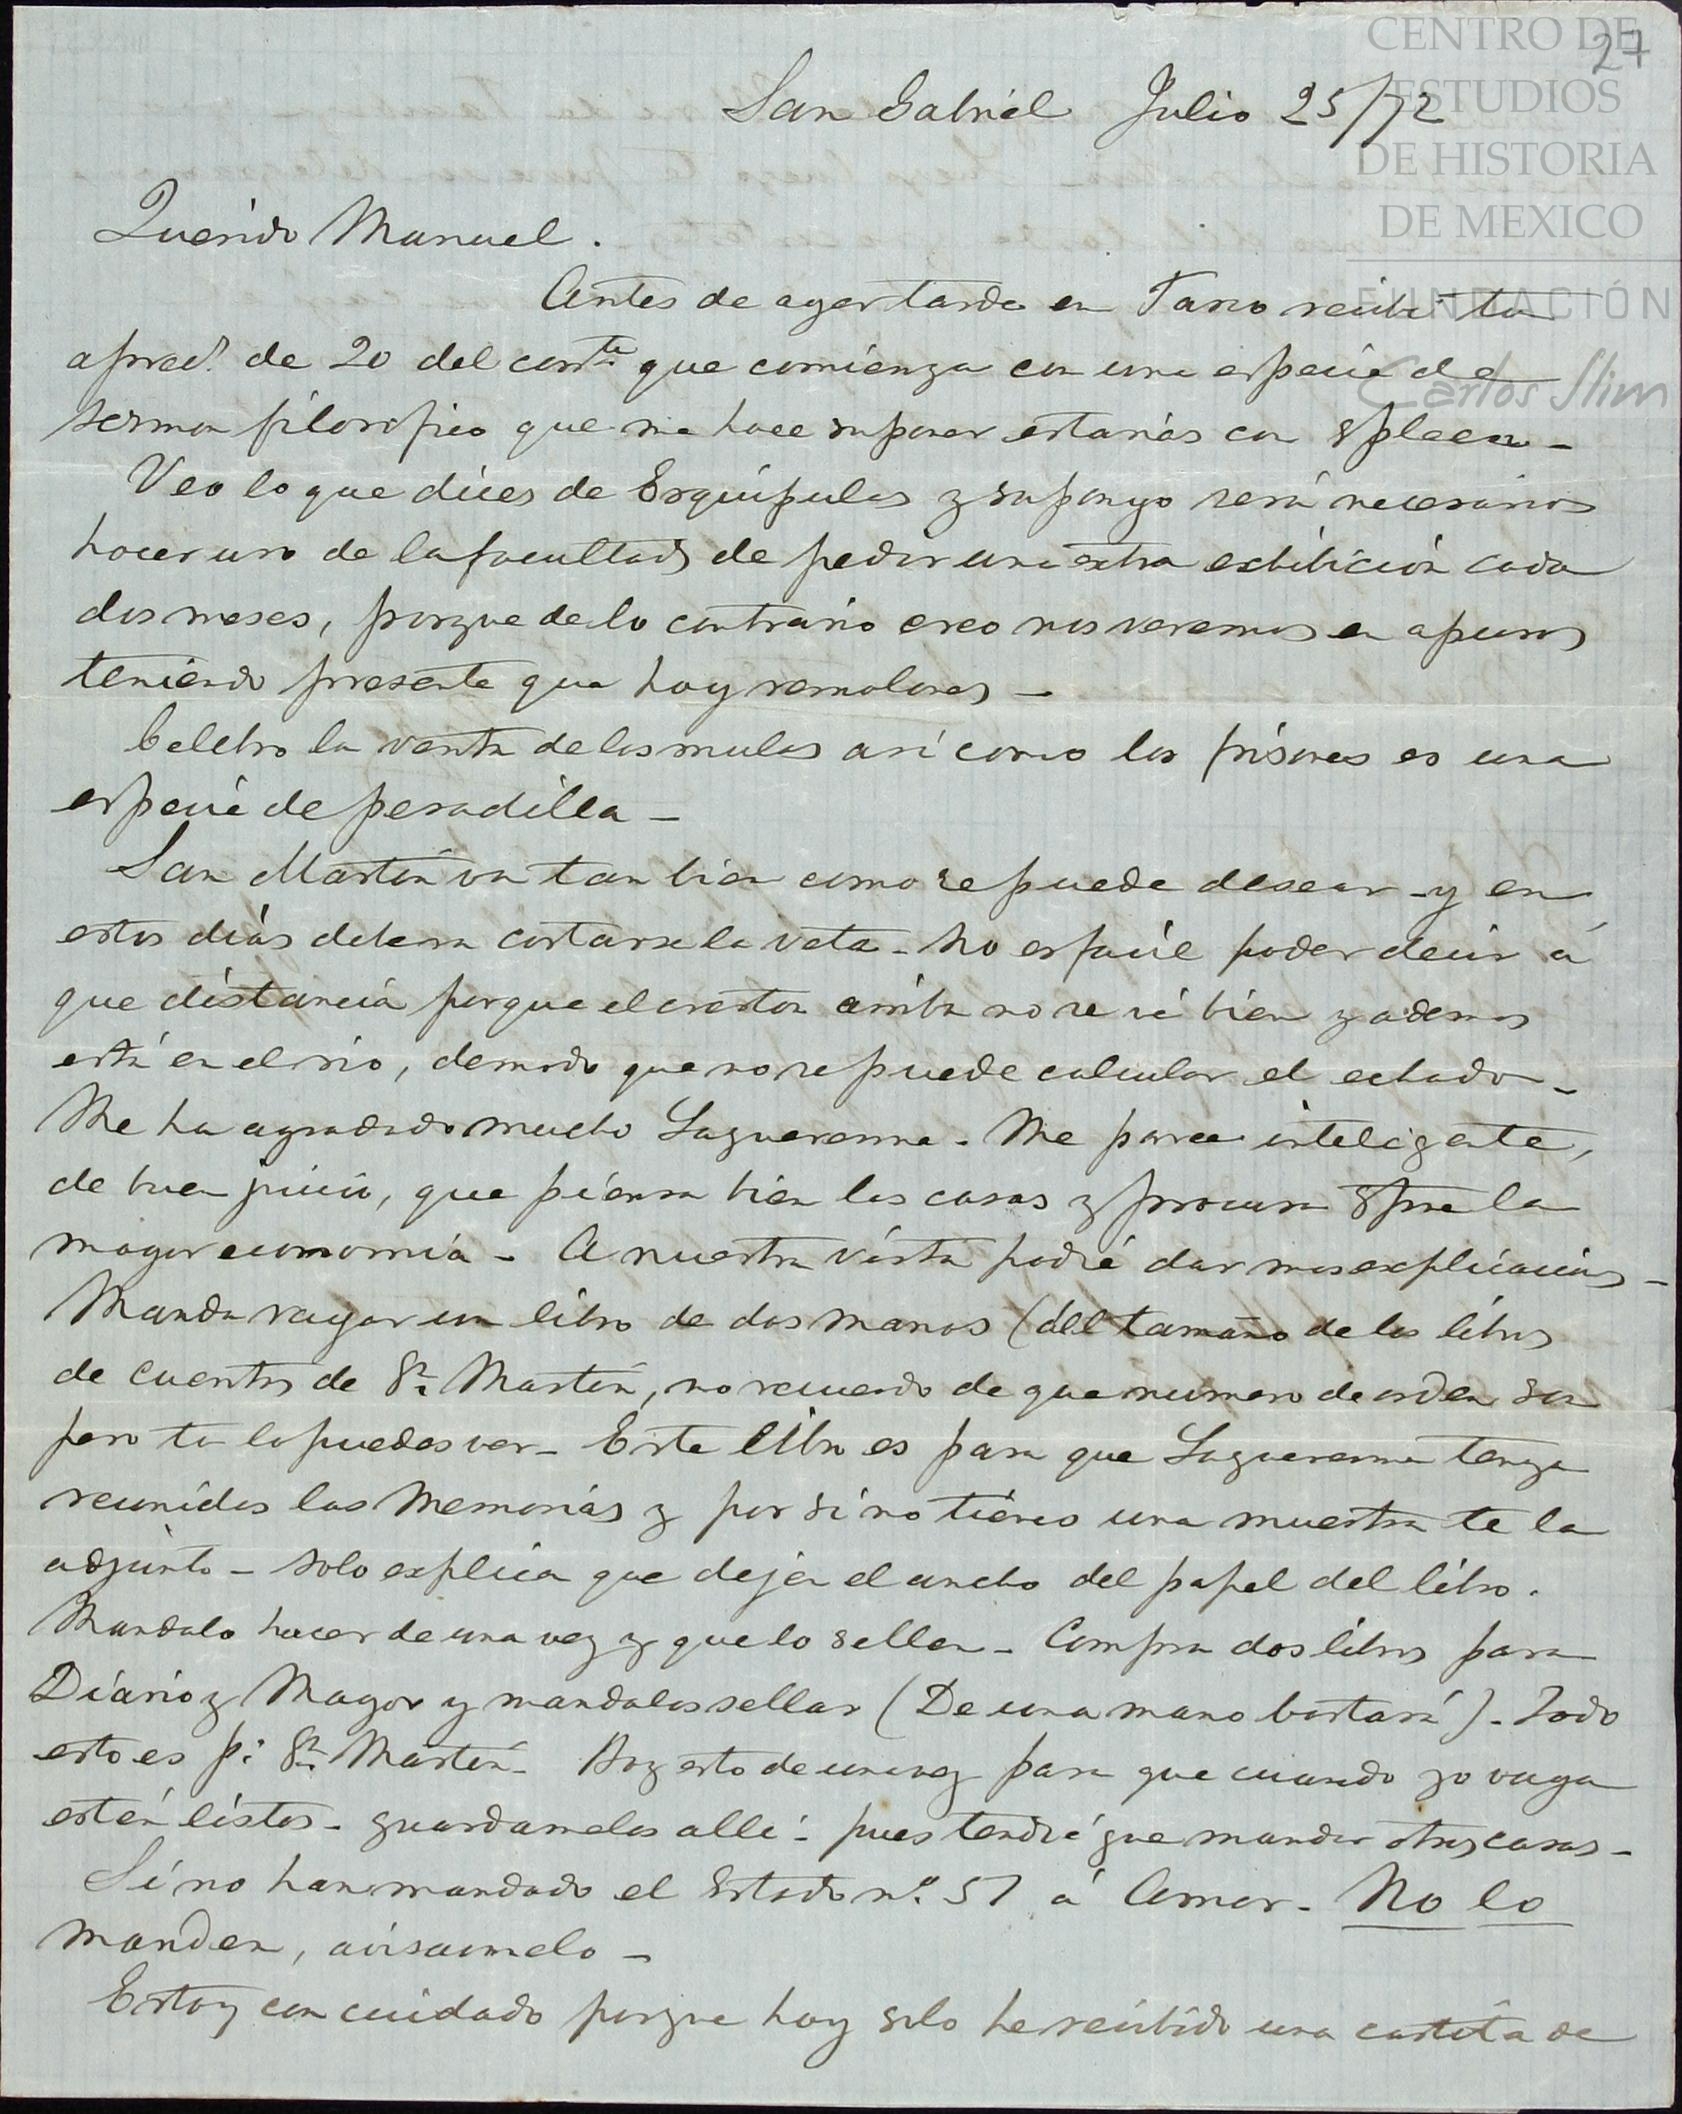 27
CENTRO DE
ESTUDIOS
DE HISTORIA
DE MEXICO
FUNDACIÓN
Carlos Slim
San Gabriel Julio 25/72
Querido Manuel.
Antes de ayer tarde en Tasco recibi tu
apred.ª de 20 del corrte que comienza con una especie de
sermon filosofico que me hace suponer estarias con spleen _
Veo lo que dices de Esquipulas y supongo será necesarios
hacer uso de la facultad de pedir una extra exhibición cada
dos meses, porque de lo contrario creo nos veremos en apuros
teniendo presente que hay remolones _
Celebro la venta de las mulas así como los frisones es una
especie de pesadilla _
San Martin va tan bien como se puede desear _ y en
estos días deberá cortarse la veta _ No es facil poder decir á
que distancia porque el creston arriba no se vé bien y ademas
está en el rio, de modo que no se puede calcular el echado _
Me ha agradado mucho Laguerenne _ Me parece inteligente,
de buen juicio, que piensa bien las cosas y procura spre la
mayor economía _ A nuestra vista podré dar mas explicacins _
Manda rayar un libro de dos manos (del tamaño de los libros
de cuentas de Sn. Martin, no recuerdo de que numero de orden son
pero tu lo puedes ver _ Este libro es para que Laguerenne tenga
reunidas las Memorias y por si no tienes una muestra te la
adjunto _ solo explica que dejen el ancho del papel del libro.
Mandalo hacer de una vez y que lo sellen _ Compra dos libros para
Diario y Mayor y mandalos sellar (De una mano bastará) _ Todo
esto es p.ª Sn. Martin _ Haz esto de una vez para que cuando yo vaya
estén listos _ guardamelos alli _ pues tendré que mandar otras cosas _
Si no han mandado el Estado n.º 51 á Amor _ No lo
manden, avisamelo _
Estoy con cuidado porque hoy solo he recibido una cartita de